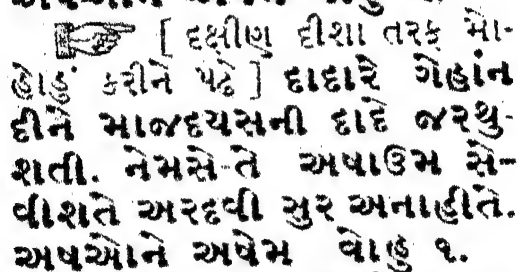 [ દક્ષીણ દીશા તરફ મો-
હોડું કરીને પઢે ] દાદારે ગેહાંન
દીને માજદયસની દાદે જરથુ-
શતી. નેમસે-તે અષાઉમ સે-
વીશતે અરદવી સુર અનાહીતે.
અષઓને અષેમ વોહુ ૧.